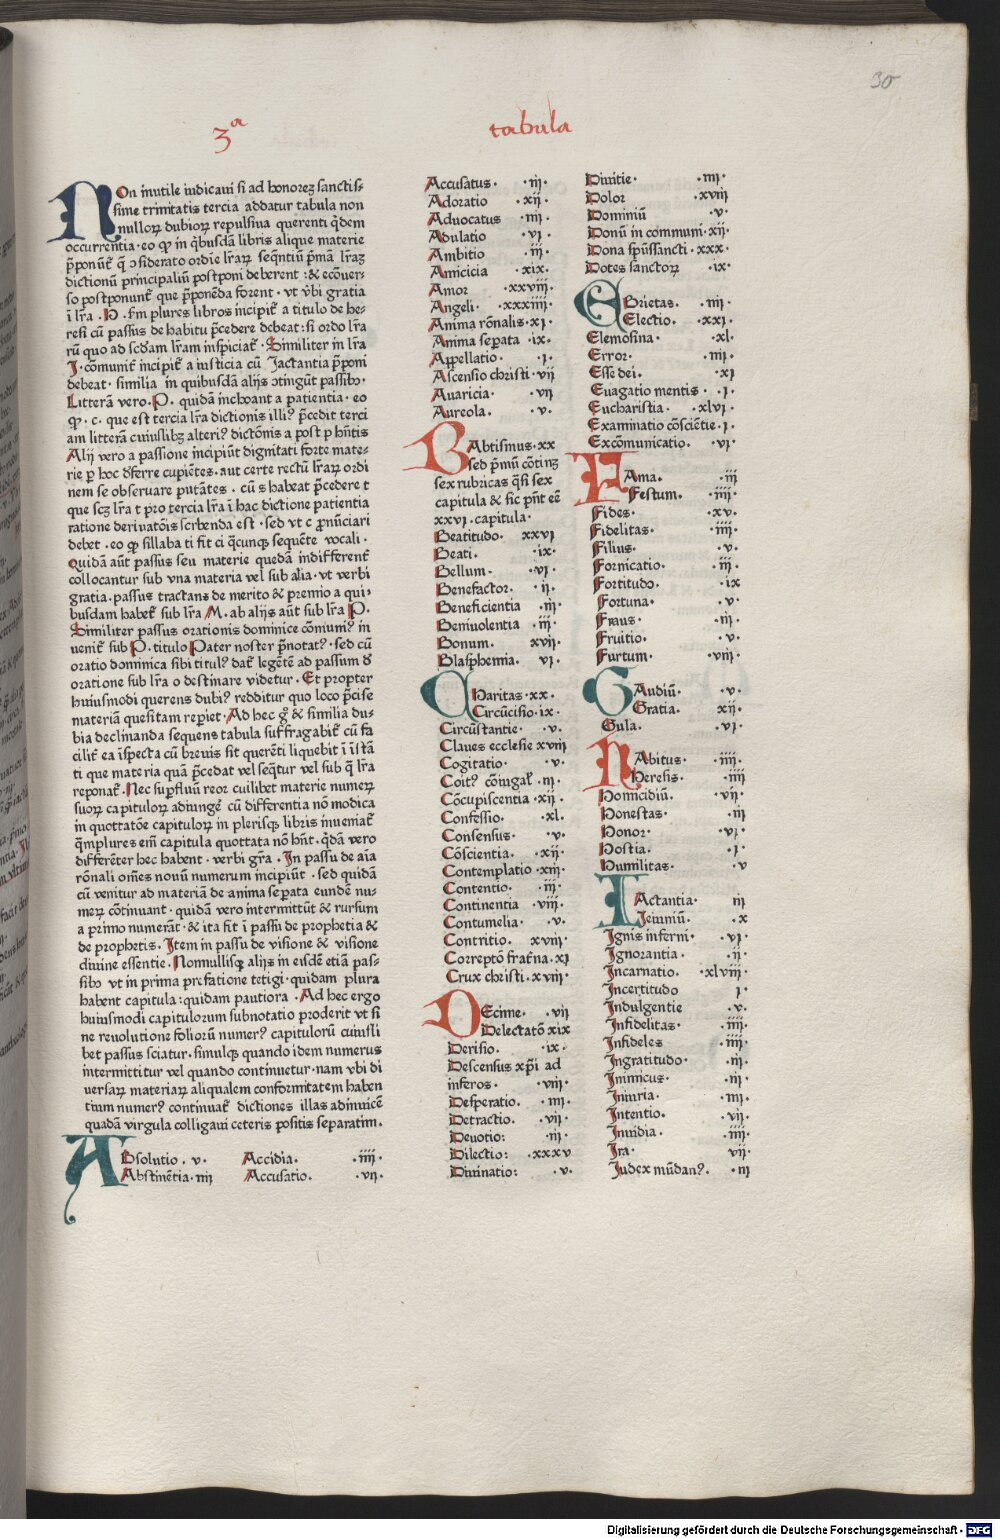 30
3ᵃ tabula
NOn inutile iudicaui si ad honoreꝫ sanctis⸗
sime trinitatis tercia addatur tabula non
nulloꝝ dubioꝝ repulsiua querenti q̄dem
occurrentia· eo ꝙ in q̄busdā libris alique materie
dictionū principaliū postponi deberent :& ecōuer⸗
so postponunt̄ que p̄ponēda forent · vt v̄bi gratia
ī lr̄a · H · s̄m plures libros incipit̄ a titulo de he⸗
resi cū passus de habitu p̄cedere debeat : si ordo lr̄a
rū quo ad scd̄am lr̄am inspiciat̄ · Similiter in lr̄a
J · cōmunit̄ incipit̄ a iusticia cū Jactantia p̄poni
debeat · similia in quibusdā alijs ↄtingūt passibꝰ·
Litterā vero · P · quidā inchoant a patientia · eo
ꝙ · c · que est tercia lr̄a dictionis illiꝰ p̄cedit terci
am litterā cuiuslibꝫ alteriꝰ dictōnis a post p hn̄tis
Alij vero a passione incipiūt dignitati forte mate⸗
rie ꝑ hoc dr̄ferre cupiētes · aut certe rectū lr̄aꝝ ordi
nem se observare putātes · cū s habeat p̄cedere t
que scꝫ lr̄a t pro tercia lr̄a ī hac dictione patientia
ratione deriuatōis scribenda est · sed vt c ꝓnūciari
debet · eo ꝙ sillaba ti sit ci q̄cunqꝫ sequēte vocali ·
Quidā aūt passus seu materie quedā indifferent̄
collocantur sub vna materia vel sub alia · vt verbi
gratia · passus tractans de merito & premio a qui⸗
busdam habet̄ sub lr̄a M · ab alijs aūt sub lr̄a P ·
Similiter passus orationis dominice cōmuniꝰ in
uenit̄ sub P · titulo Pater noster p̄notatꝰ · sed cū
oratio dominica sibi titulꝰ dat̄ legētē ad passum d̄
oratione sub lr̄a o destinare videtur · Et propter
huiusmodi querens dubiꝰ redditur quo loco p̄cise
materiā quesitam reꝑiet · Ad hec g̊ & similia du⸗
bia declinanda sequens tabula suffragabit̄ cū fa
cilit̄ ea īspecta cū breuis sit querēti liquebit ī istā
ti que materia quā p̄cedat vel seq̄tur vel sub q̄ lr̄a
reponat̄ · Nec suꝑfluū reor cuilibet materie numeꝝ
suoꝝ capituloꝝ adiungē cū differentia nō modica
in quottatōe capituloꝝ in plerisqꝫ libris inueniat̄
q̄mplures em̄ capitula quottata nō hn̄t · q̄dā vero
differēter hec habent · verbi gr̄a · In passu de aīa
rōnali om̄es nouū numerum incipiūt · sed quidā
cū venitur ad materiā de anima seꝑata eundē nu⸗
meꝝ cōtinuant · quidā vero intermittūt & rursum
a primo numerāt · & ita fit ī passu de prophetia &
de prophetis · Item in passu de visione & visione
diuine essentie · Nonnullisqꝫ alijs in eisdē etiā pas⸗
sibꝰ vt in prima prefatione tetigi · quidam plura
habent capitula : quidam pautiora · Ad hec ergo
huiusmodi capitulorum subnotatio proderit vt si
ne reuolutione folioruū numerꝰ capitulorū cuiusli
bet passus sciatur · simulqꝫ quando idem numerus
intermittitur vel quando continuetur · nam vbi di
uersaꝝ materiaꝝ aliqualem conformitatem haben
tium numerꝰ continuat̄ dictiones illas adinuicē
quadā virgula colligaui ceteris positis separatim ·
ABsolutio · v · Accidia · ·iiij·
Abstinētia · iiij Accusatio · ·vij·
Accusatus · ·iij·
Adoratio ·xij·
Aduocatus ·iiij·
Adulatio ·vj·
Ambitio ·iij·
Amicicia ·xix·
Amor ·xxviij·
Angeli · ·xxxiiij·
Anima rōnalis ·xj·
Anima seꝑata ·ix·
Appellatio · ·j·
Ascensio christi · vij
Auaricia · ·vij
Aureola · ·v·
BAbtismus · xx
sed p̄miū cōting
sex rubricas q̄si sex
capitula & sic pn̄t eē
xxvj · capitula ·
Beatitudo · xxvj
Beati · ·ix·
Bellum · ·vj·
Benefactor · ·ij·
Beneficientia ·iij·
Beniuolentia ·iij·
Bonum · xvij·
Blasphemia · vj·
CHaritas · xx·
Circūcisio · ix·
Circūstantie · ·v·
Claues ecclesie xviij
Cogitatio · ·v·
Coitꝰ cōiugal̄ · iij·
Cōcupiscentia · xij·
Confessio · ·xl·
Consensus · ·v·
Cōscientia · ·xij·
Contemplatio · xiij·
Contentio · ·iij·
Continentia ·viij·
Contumelia · ·v·
Contritio · xviij·
Correptō frat̄na · xj
Crux christi · xviij·
DEcime · ·vij
Delectatō xix
Derisio · ·ix·
Descensus xp̄i ad
inferos · ·viij·
Desperatio · ·iiij·
Detractio · ·vij·
Deuotio: ·iij·
Dilectio: ·xxxv
Diuinatio: ·v·
Diuitie · ·iiij·
Dolor ·xviij
Dominiū ·v·
Donū in communi · xij·
Dona spūssancti · xxx·
Dotes sanctoꝝ ·ix·
EBrietas · ·iiij·
Electio · ·xxj·
Elemosina · ·xl·
Error · ·iiij·
Esse dei · ·xj
Euagatio mentis · ·j·
Eucharistia · ·xlvj·
Examinatio cōsciētie · j·
Excōmunicatio · ·vj·
FAma · ·iij
Festum · ·iiij·
Fides · ·xv·
Fidelitas · ·iiij·
Filius · ·v·
Fornicatio · ·iij·
Fortitudo · ·ix
Fortuna · ·v·
Fraus · ·iij·
Fruitio · ·v·
Furtum · ·viij·
GAudiū · ·v·
Gratia · xij·
Gula · ·vj·
HAbitus · ·iiij·
Heresis · ·iiij
Homicidiū · ·vij·
Honestas · ·iij
Honor · ·vj·
Hostia · ·j·
Humilitas · ·v
IActantia · iij
Jeiuniū · ·x
Ignis inferni · ·vj·
Ignorantia · ·ij·
Incarnatio · ·xlviij·
Incertitudo j·
Indulgentie ·v·
Infidelitas · ·iiij·
Infideles ·iiij·
Ingratitudo · ·iij·
Inimicus · ·iij·
Iniuria · ·iiij·
Intentio · ·vij·
Inuidia · ·iiij·
Ira · vij·
Judex mūdanꝰ · ·iij
Digitalisierung gefördert durch die Deutsche Forschungsgemeinschaft - DFG